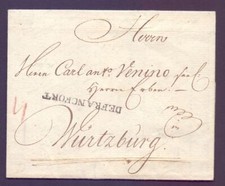 Herrn
Herrn Carl ant: Venino seel:
Herrn Erben
DE FRANCFORT
Würtzburg